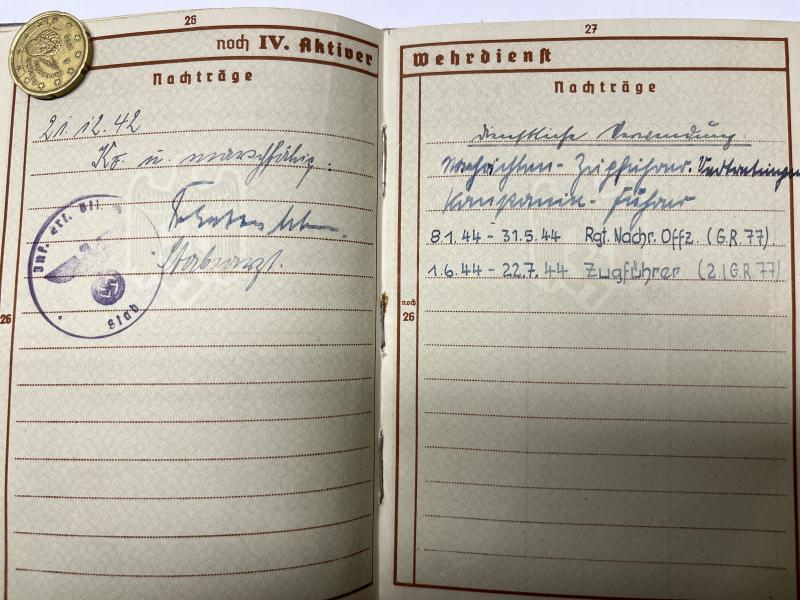 26
noch IV. Aktiver
Nachträge
21.12.42
Kv. u. marschfähig.
Stabsarzt.
Inf. Ers. Btl.
Stab
26
27
Wehrdienst
Nachträge
dienstliche Verwendung:
Nachrichten-Zugführer. Vertretungen
Kompanie-Führer
8.1.44 - 31.5.44 Rgt. Nachr. Offz. (G.R. 77).
1.6.44 - 22.7.44 Zugführer (2.IG.R.77)
noch
26